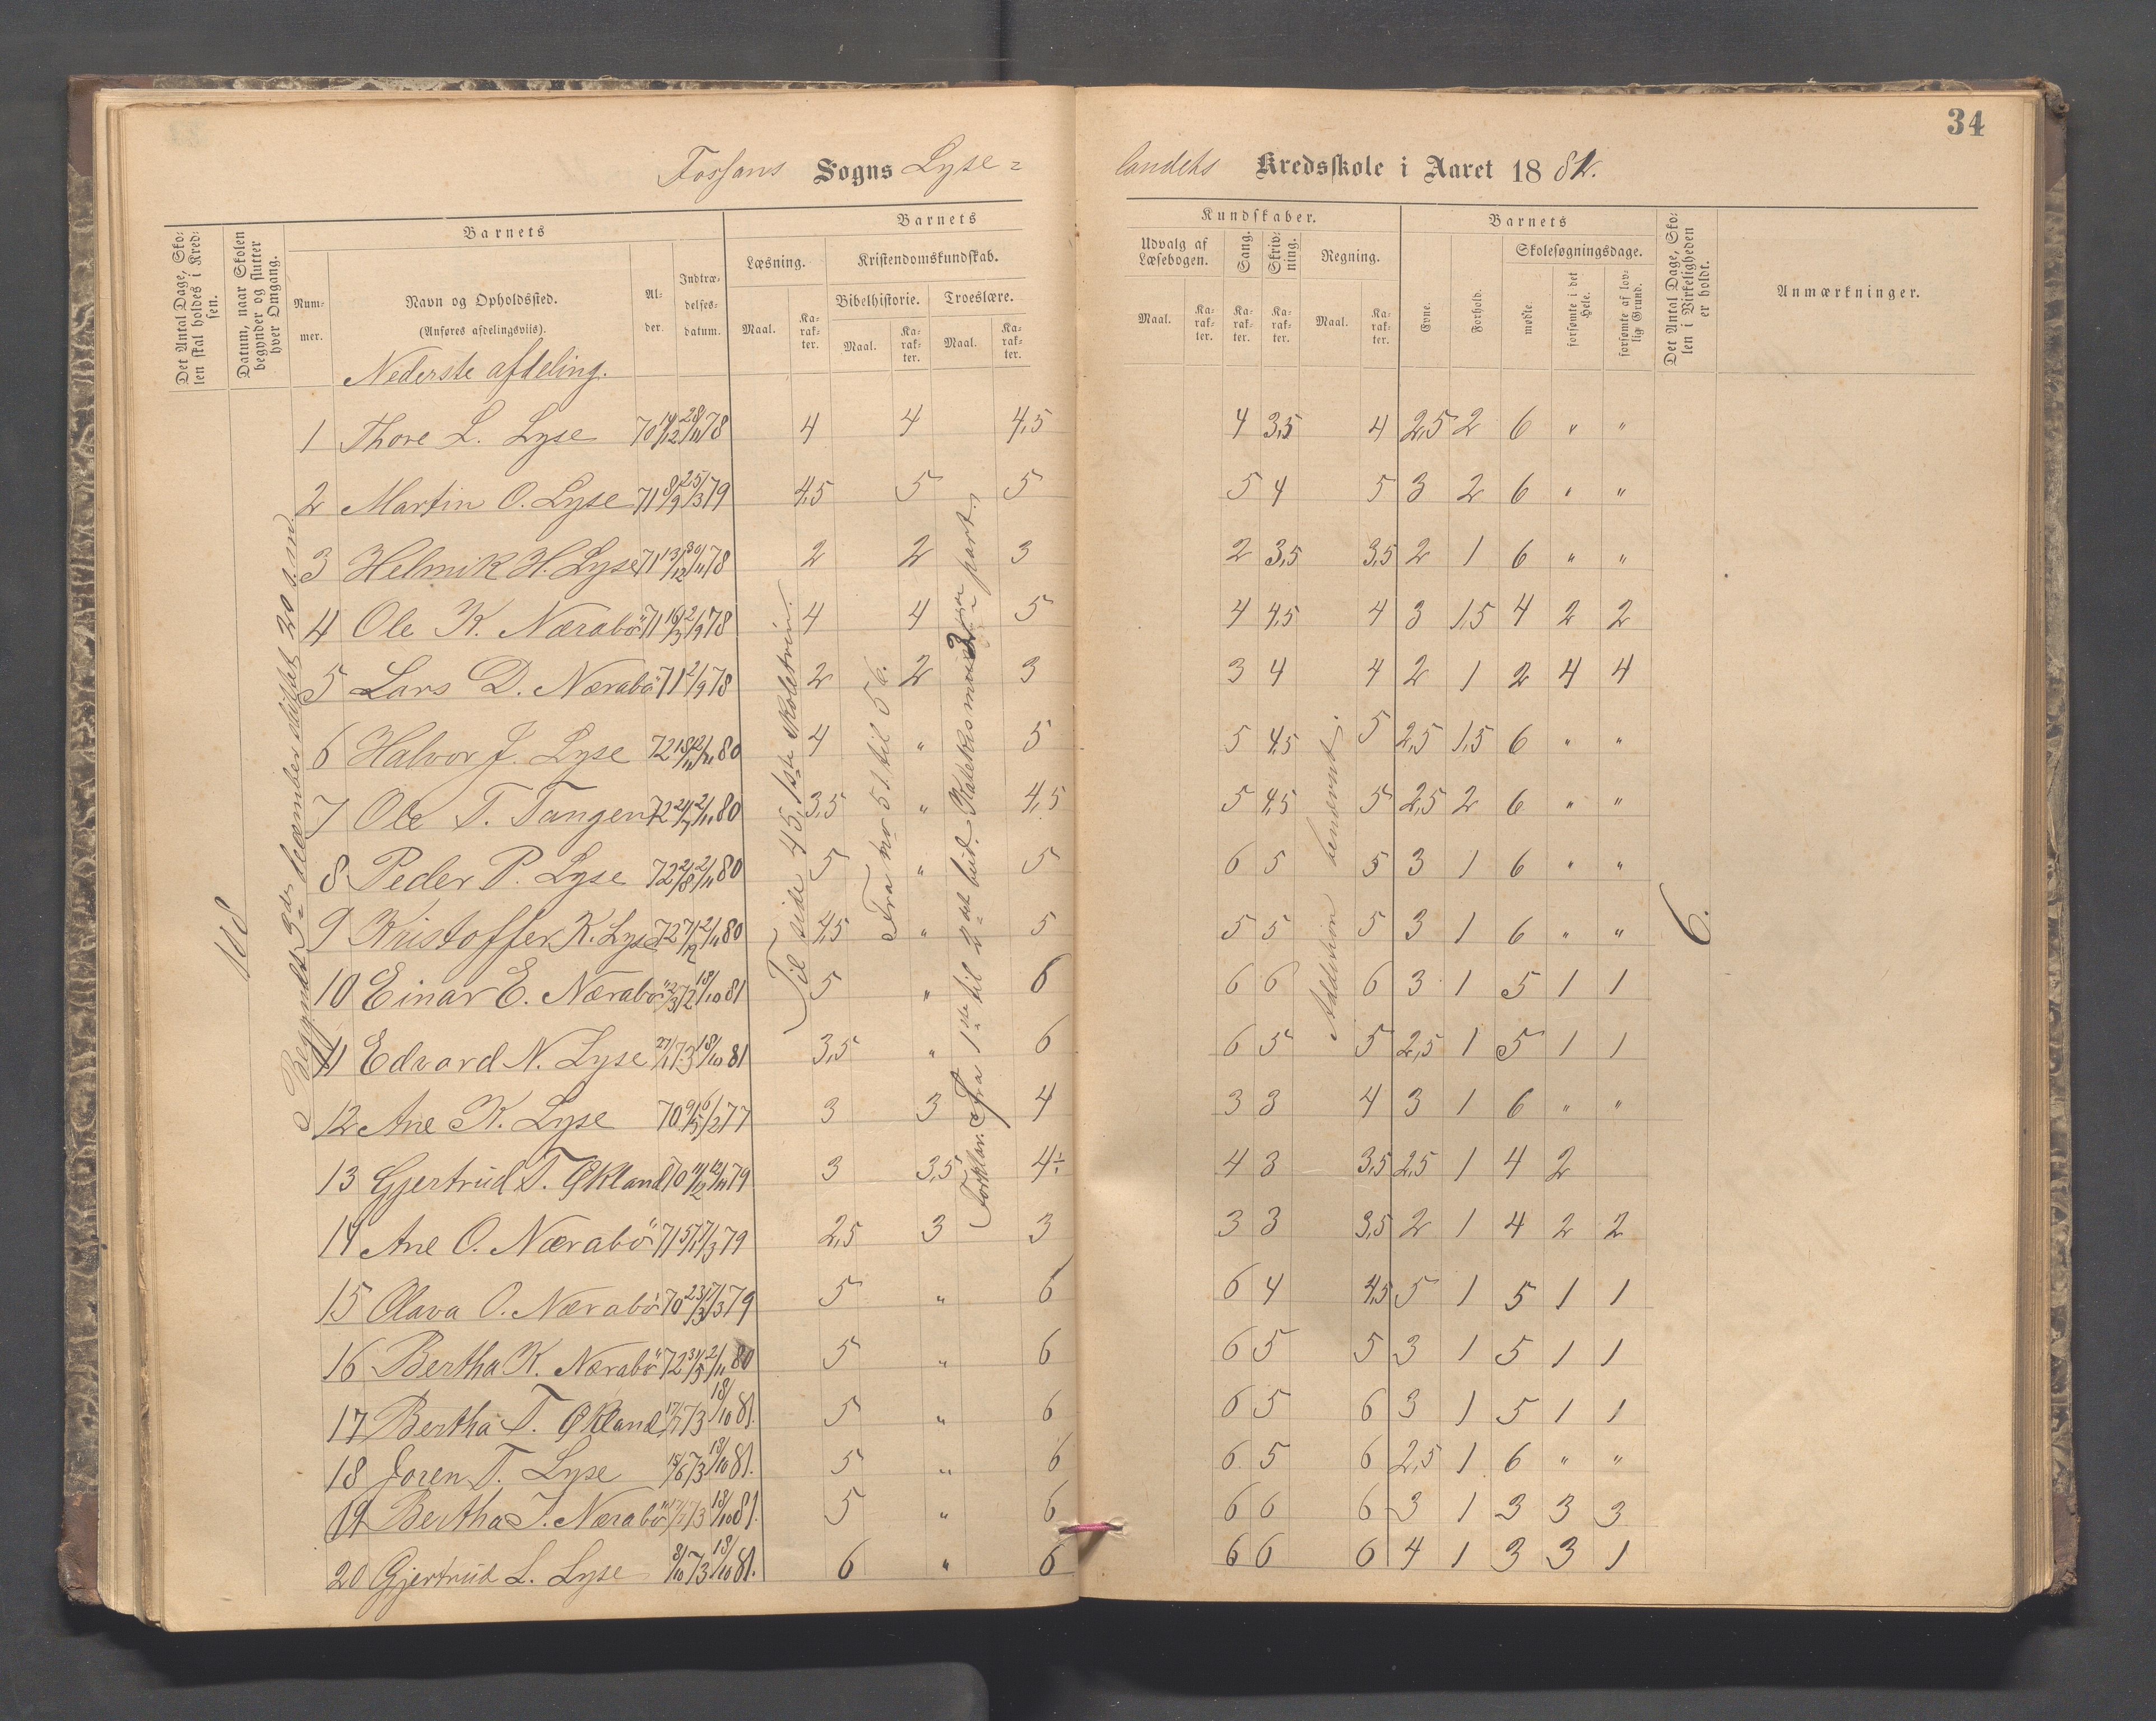 34
Fossans Sogns Lyse=
landets Kredsskole i Aaret 1882.
Det Antal Dage, Skolen skal holdes i Kredsen.
Datum, naar Skolen begynder og slutter hver Omgang.
Barnets
Nummer.
Navn og Opholdssted.
(Anføres afdelingsviis).
Alder.
Indtrædelsesdatum.
Barnets
Læsning.
Maal.
Karakter.
Kristendomskundskab.
Bibelhistorie.
Maal.
Karakter.
Troeslære.
Maal.
Karakter.
Kundskaber.
Udvalg af Læsebogen.
Maal.
Karakter.
Sang.
Karakter.
Skrivning.
Karakter.
Regning.
Maal.
Karakter.
Barnets
Evne.
Forhold.
Skolesøgningsdage.
mødte.
forsømte i det Hele.
forsømte af lovlig Grund.
Det Antal Dage, Skolen i Virkeligheden er holdt.
Anmærkninger.
Nederste afdeling.
108
Begyndt 9de december sluttet 20 s.m.
Til side 45, 1ste skoletrin.
Fra no 51 til 56.
Addition benævnt.
6.
1 Thore L. Lyse 70 14/12 28/11 78 4 4 4,5 4 3,5 4 2,5 2 6 " "
2 Martin O. Lyse 71 8/9 25/3 79 4,5 5 5 5 4 5 3 2 6 " "
3 Helmik H. Lyse 71 13/12 30/11 78 2 2 3 2 3,5 3,5 2 1 6 " "
4 Ole K. Nærabö 71 16/3 2/9 78 4 4 5 4 4,5 4 3 1,5 4 2 2
5 Lars D. Nærabö 71 2/9 78 2 2 3 3 4 4 2 1 2 4 4
6 Halvor J. Lyse 72 18/11 2/11 80 4 " 5 5 4,5 5 2,5 1,5 6 " "
7 Ole T. Tangen 72 2/11 80 3,5 " 4,5 5 4,5 5 2,5 2 6 " "
8 Peder P. Lyse 72 2/8 2/11 80 5 " 5 6 5 5 3 1 6 " "
9 Kristoffer K. Lyse 72 7/12 2/11 80 4,5 " 5 5 5 5 3 1 6 " "
10 Einar E. Nærabö 2/3 72 18/10 81 5 " 6 6 6 6 3 1 5 1 1
11 Edvard N. Lyse 27/1 73 18/10 81 3,5 " 6 6 5 5 2,5 1 5 1 1
12 Ane K. Lyse 70 9/5 6/2 77 3 3 4 3 3 4 3 1 6 " "
13 Gjertrud T. Økland 70 11/12 12/11 79 3 3,5 4÷ 4 3 3,5 2,5 1 4 2
14 Ane O. Nærabö 71 5/1 17/3 79 2,5 3 3 3 3 3,5 2 1 4 2 2
15 Olava O. Nærabö 70 23/3 17/3 79 5 " 6 6 4 4,5 5 1 5 1 1
16 Bertha K. Nærabö 72 31/5 2/11 80 5 " 6 6 5 5 3 1 5 1 1
17 Bertha T. Økland 17/7 73 18/10 81. 5 " 6 6 5 6 3 1 5 1 1
18 Joren T. Lyse 15/6 73 18/10 81. 5 " 6 6 5 6 2,5 1 6 " "
19 Bertha J. Nærabö 17/7 73 18/10 81. 5 " 6 6 6 6 3 1 3 3 3
20 Gjertrud L. Lyse 8/10 73 18/10 81. 6 " 6 6 6 6 4 1 3 3 1